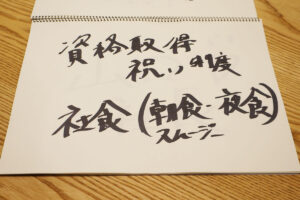 資格取得
祝い制度
社食(朝食・夜食)
スムージー